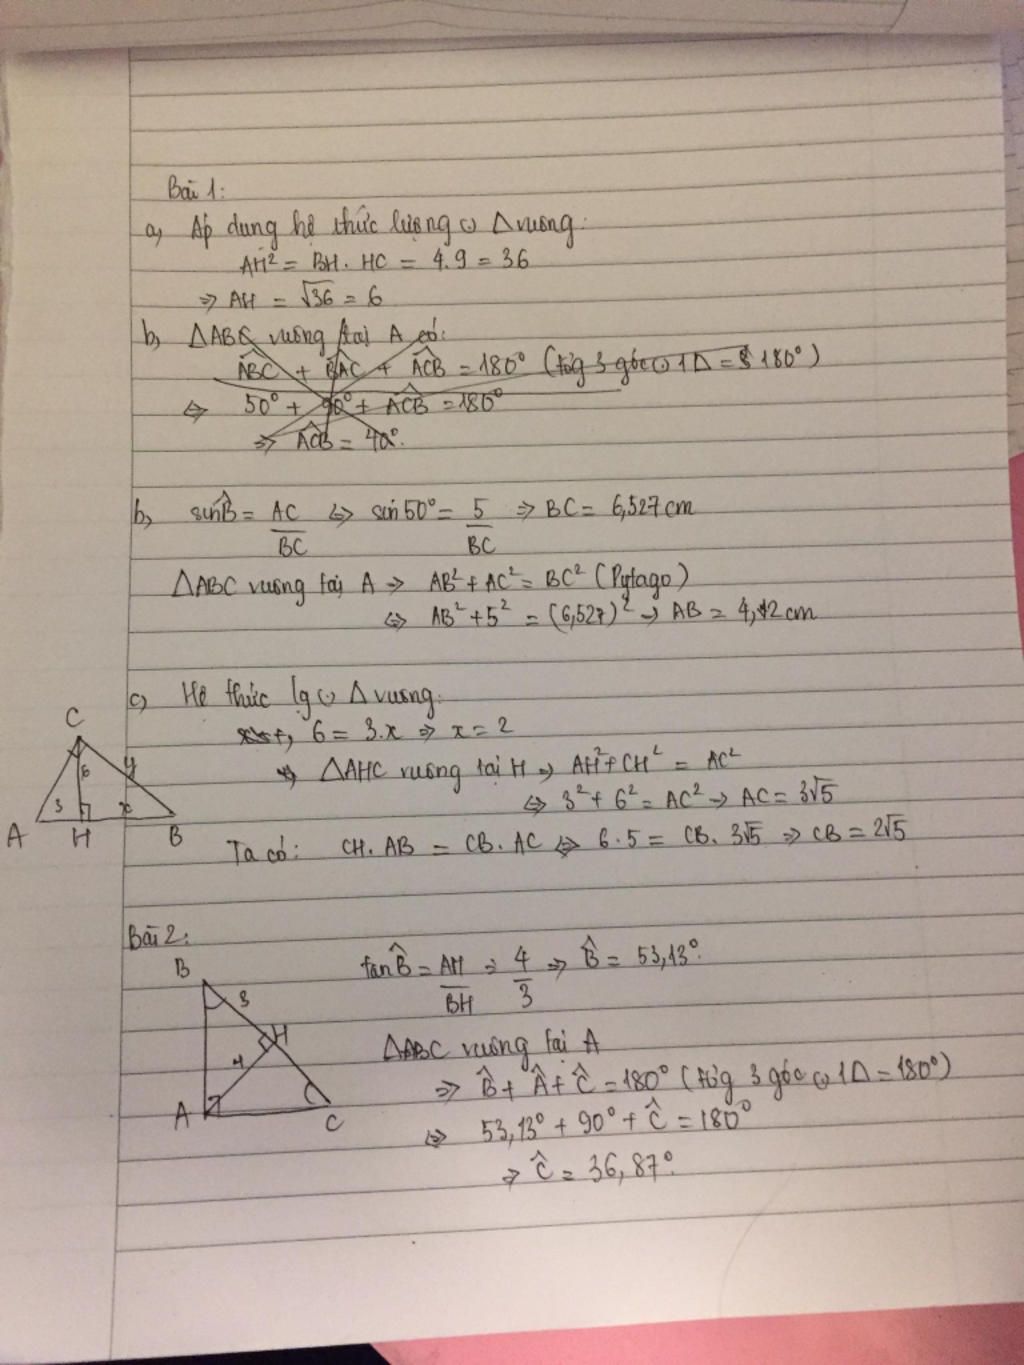 Bài 1:
a, Áp dụng hệ thức lượng Δ vuông:
AH² = BH . HC = 4.9 = 36
⇒ AH = √36 = 6
b, ΔABC vuông tại A có:
ABC + BAC + ACB = 180° (tổg 3 góc 1Δ = 180°)
⇔ 50° + 90° + ACB = 180°
⇒ ACB = 40°.
b, sin B̂ = AC/BC ⇔ sin 50° = 5/BC ⇒ BC = 6,527 cm
ΔABC vuông tại A ⇒ AB² + AC² = BC² (Pytago)
⇔ AB² + 5² = (6,527)² → AB = 4,12 cm
c, Hệ thức lg Δ vuông:
+, 6 = 3.x ⇒ x = 2
ΔAHC vuông tại H ⇒ AH² + CH² = AC²
⇔ 3² + 6² = AC² → AC = 3√5
Ta có: CH. AB = CB. AC ⇔ 6.5 = CB. 3√5 ⇒ CB = 2√5
C
6
y
3
x
A H B
Bài 2:
tan B̂ = AH/BH = 4/3 ⇒ B̂ = 53,13°.
ΔABC vuông tại A
⇒ B̂ + Â + Ĉ = 180° (tổg 3 góc 1Δ = 180°)
⇔ 53,13° + 90° + Ĉ = 180°
⇒ Ĉ = 36,87°.
B
3
H
4
A C